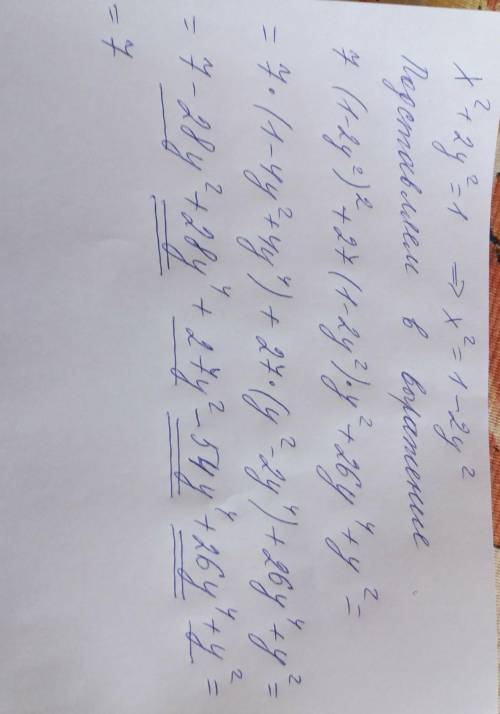 x² + 2y² = 1 ⇒ x² = 1 - 2y²
Подставляем в выражение
7 (1-2y²)² + 27(1-2y²)·y² + 26y⁴ + y² =
= 7·(1-4y²+4y⁴) + 27·(y²-2y⁴) + 26y⁴ + y² =
= 7 - 28y² + 28y⁴ + 27y² - 54y⁴ + 26y⁴ + y² =
= 7